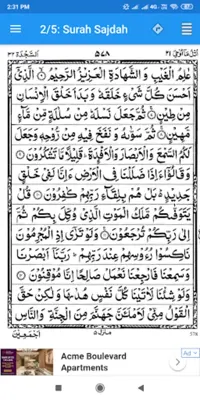 2:31 PM
2/5: Surah Sajdah
السَّجْدَة ٣٢
٥٤٨
اُتْلُ مَآ اُوْحِىَ ٢١
عٰلِمُ الْغَيْبِ وَ الشَّهَادَةِ الْعَزِيْزُ الرَّحِيْمُ ۙ الَّذِيْۤ
اَحْسَنَ كُلَّ شَيْءٍ خَلَقَهٗ وَ بَدَاَ خَلْقَ الْاِنْسَانِ
مِنْ طِيْنٍ ۚ ثُمَّ جَعَلَ نَسْلَهٗ مِنْ سُلٰلَةٍ مِّنْ مَّآءٍ
مَّهِيْنٍ ۚ ثُمَّ سَوّٰىهُ وَ نَفَخَ فِيْهِ مِنْ رُّوْحِهٖ وَ جَعَلَ
لَكُمُ السَّمْعَ وَ الْاَبْصَارَ وَ الْاَفْـِٕدَةَ ؕ قَلِيْلًا مَّا تَشْكُرُوْنَ
وَ قَالُوْۤا ءَاِذَا ضَلَلْنَا فِي الْاَرْضِ ءَاِنَّا لَفِيْ خَلْقٍ
جَدِيْدٍ ؕ بَلْ هُمْ بِلِقَآئِ رَبِّهِمْ كٰفِرُوْنَ قُلْ
يَتَوَفّٰىكُمْ مَّلَكُ الْمَوْتِ الَّذِيْ وُكِّلَ بِكُمْ ثُمَّ
اِلٰى رَبِّكُمْ تُرْجَعُوْنَ وَ لَوْ تَرٰۤى اِذِ الْمُجْرِمُوْنَ
نَاكِسُوْا رُءُوْسِهِمْ عِنْدَ رَبِّهِمْ ؕ رَبَّنَاۤ اَبْصَرْنَا
وَ سَمِعْنَا فَارْجِعْنَا نَعْمَلْ صَالِحًا اِنَّا مُوْقِنُوْنَ
وَ لَوْ شِئْنَا لَاٰتَيْنَا كُلَّ نَفْسٍ هُدٰىهَا وَ لٰكِنْ حَقَّ
الْقَوْلُ مِنِّيْ لَاَمْلَـَٔنَّ جَهَنَّمَ مِنَ الْجِنَّةِ وَ النَّاسِ
اَجْمَعِيْنَ
منزل ٥
Ad
Acme Boulevard
Apartments